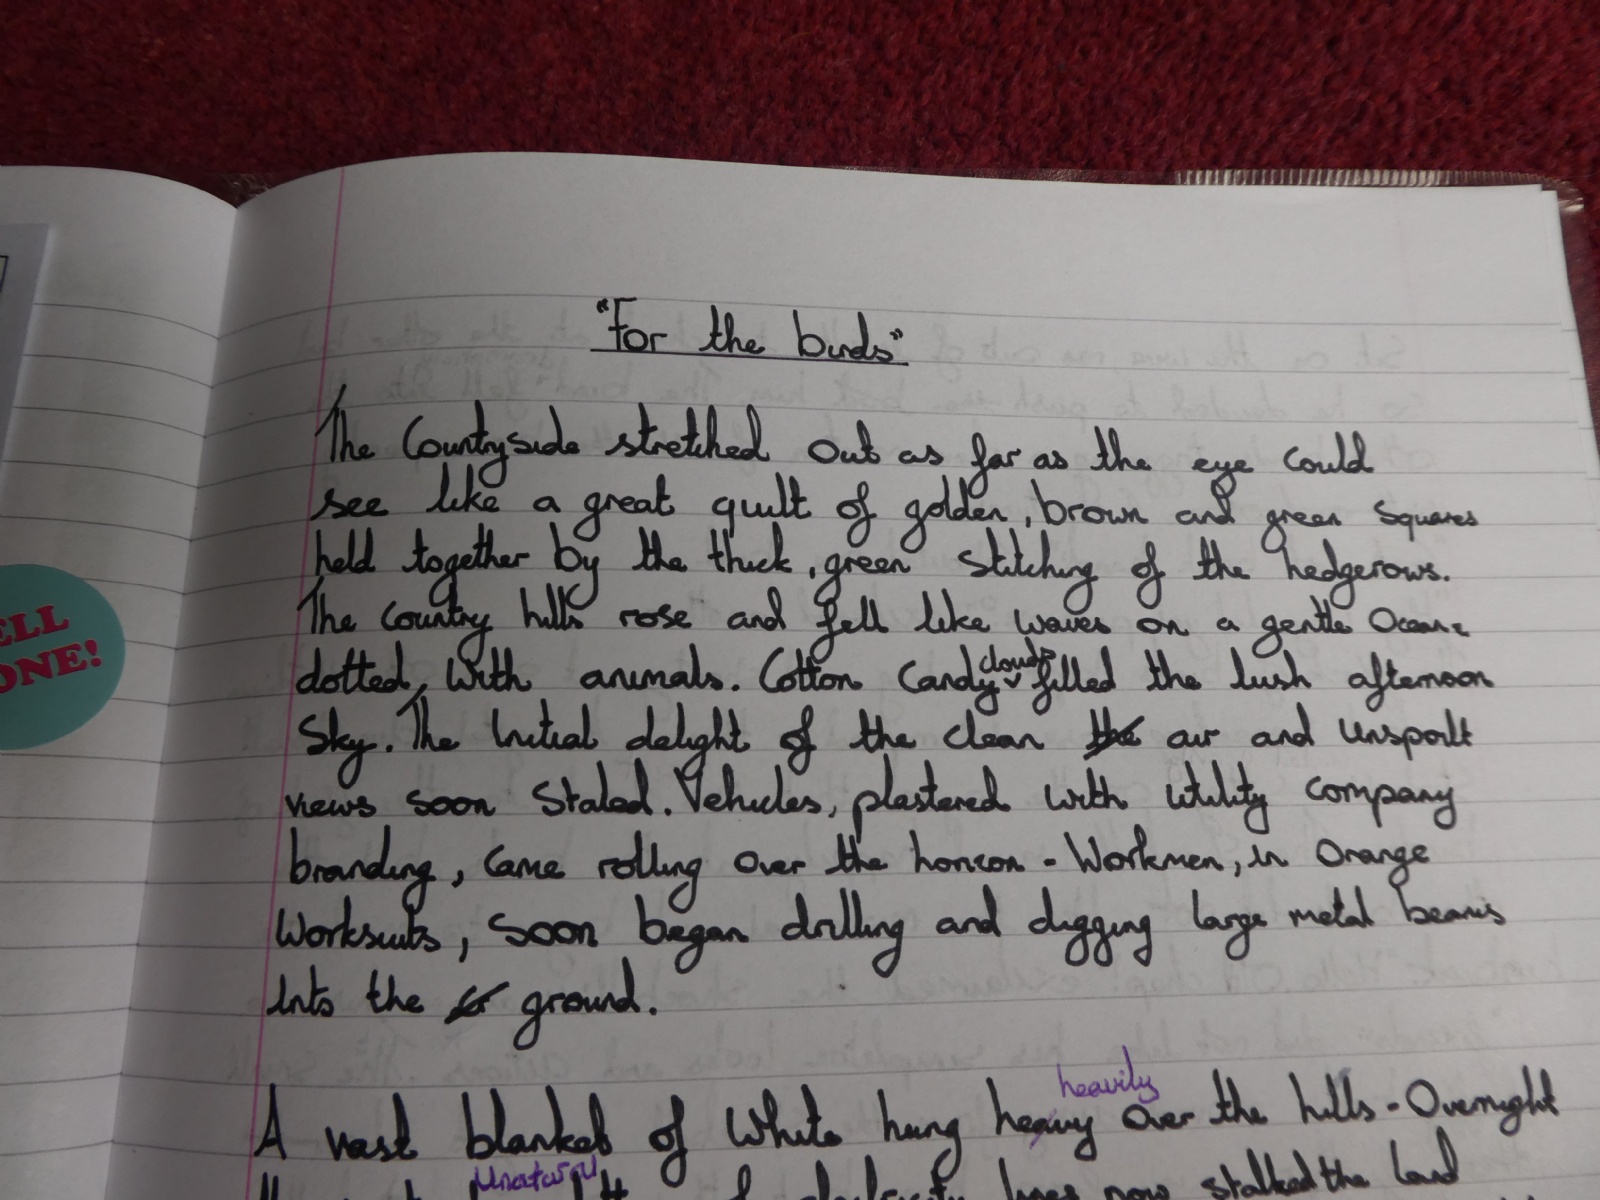 "For the birds"
The Countryside stretched out as far as the eye could
see like a great quilt of golden, brown and green squares
held together by the thick, green stitching of the hedgerows.
The country hills rose and fell like waves on a gentle Ocean
dotted, with animals. Cotton Candy clouds filled the lush afternoon
Sky. The initial delight of the clean the air and unspoilt
views soon Staled. Vehicles, plastered with utility company
branding, came rolling over the horizon - Workmen, in Orange
Worksuits, soon began drilling and digging large metal beams
into the ground.
heavily
A vast blanket of White hung heavy over the hills - Overnight
lines now stalked the land
ELL
ONE!